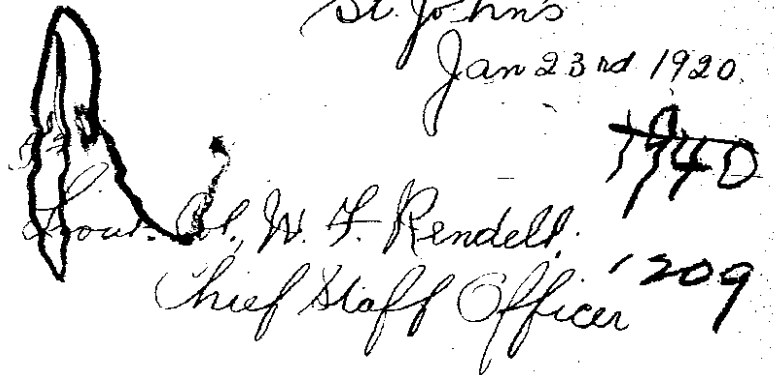 St. John's
Jan 23rd 1920.
1940
Lieut. Col. W. F. Rendell.
1209
Chief Staff Officer